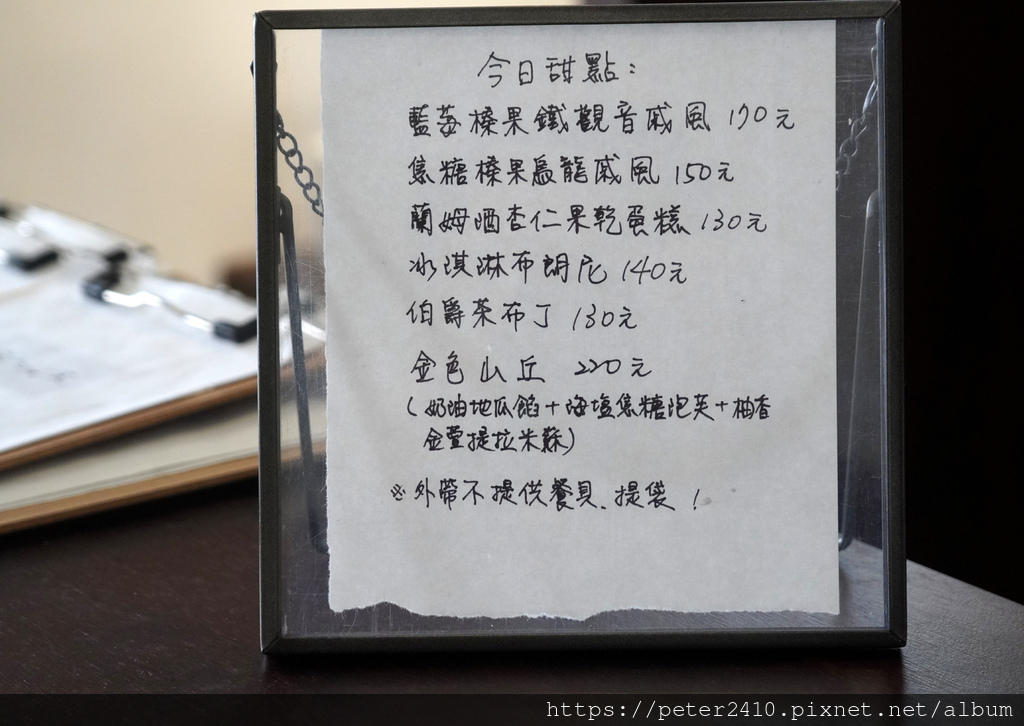 今日甜點：
藍莓榛果鐵觀音戚風 170元
焦糖榛果烏龍戚風 150元
蘭姆酒杏仁果乾蛋糕 130元
冰淇淋布朗尼 140元
伯爵茶布丁 130元
金色山丘 220元
(奶油地瓜餡+海塩焦糖泡芙+柚香
金萱提拉米蘇)
※外帶不提供餐具、提袋！
https://peter2410.pixnet.net/album